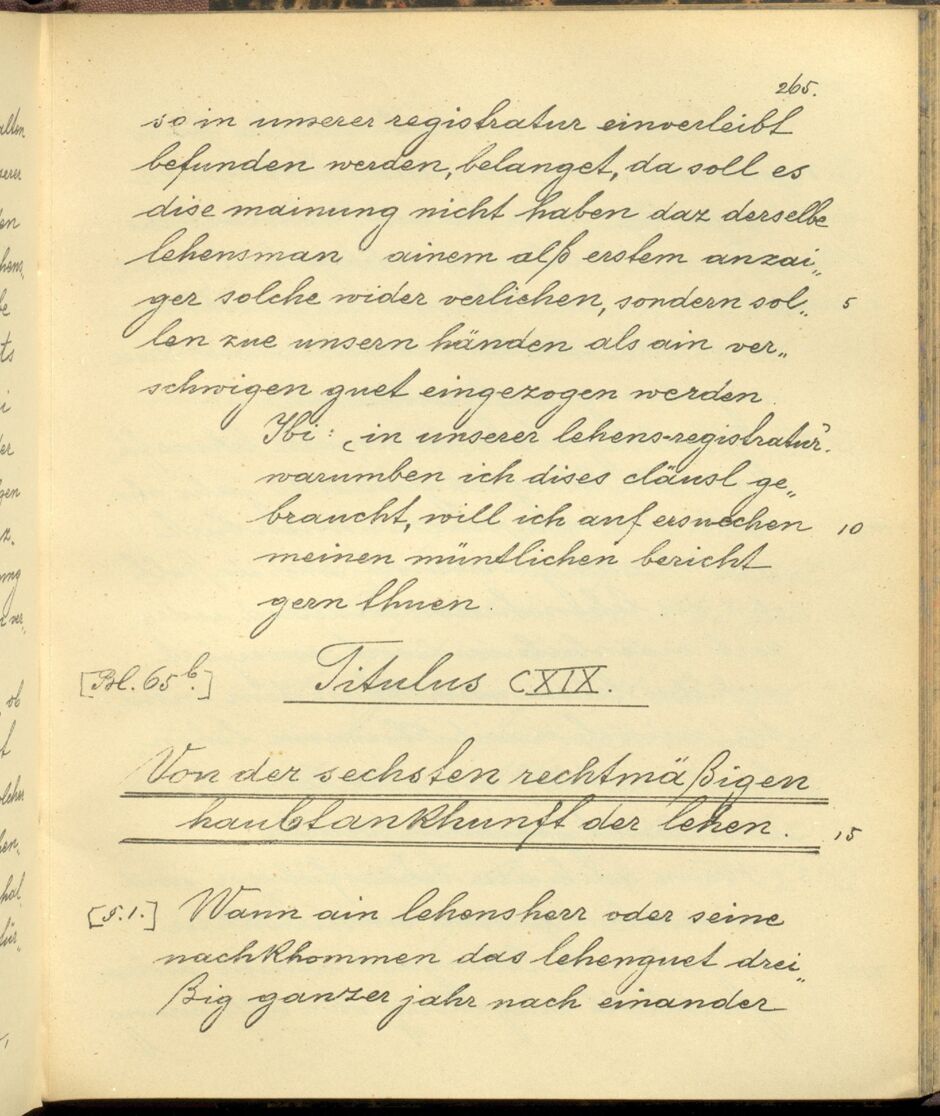 265.
so in unserer registratur einverleibt
befunden werden, belanget, da soll es
dise mainung nicht haben daz derselbe
lehensman ainem alß erstem anzai„
ger solche wider verlichen, sondern sol„ 5
len zue unsern händen als ain ver„
schwigen guet eingezogen werden.
Ibi: (in unserer lehens-registratur).
warumben ich dises cläusl ge„
braucht, will ich auf ersuechen 10
meinen müntlichen bericht
gern thuen.
[Bl. 65 b.] Titulus CXIX.
Von der sechsten rechtmäßigen
haubtankhunft der lehen. 15
[§.1.] Wann ain lehensherr oder seine
nachkhommen das lehenguet drei„
ßig ganzer jahr nach einander